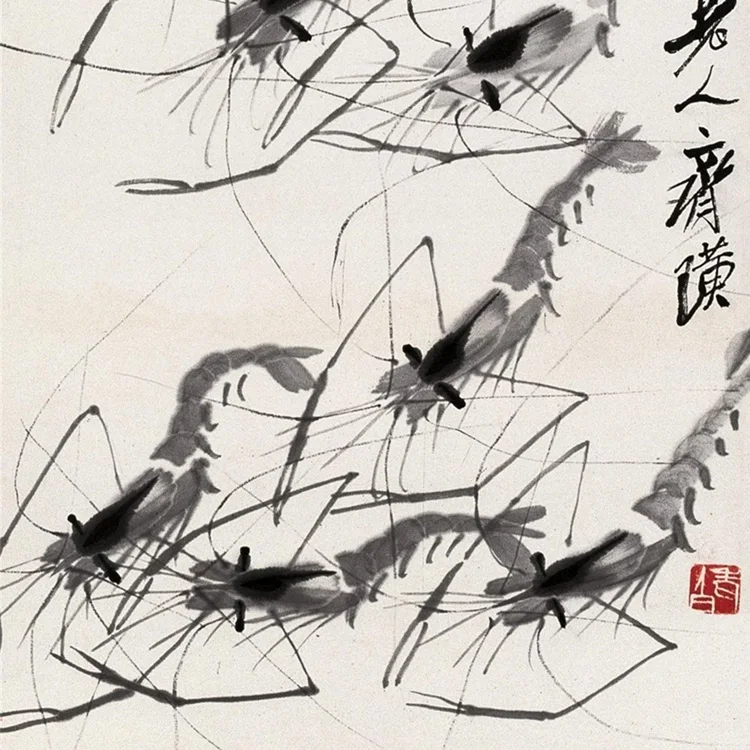 老人齊璜